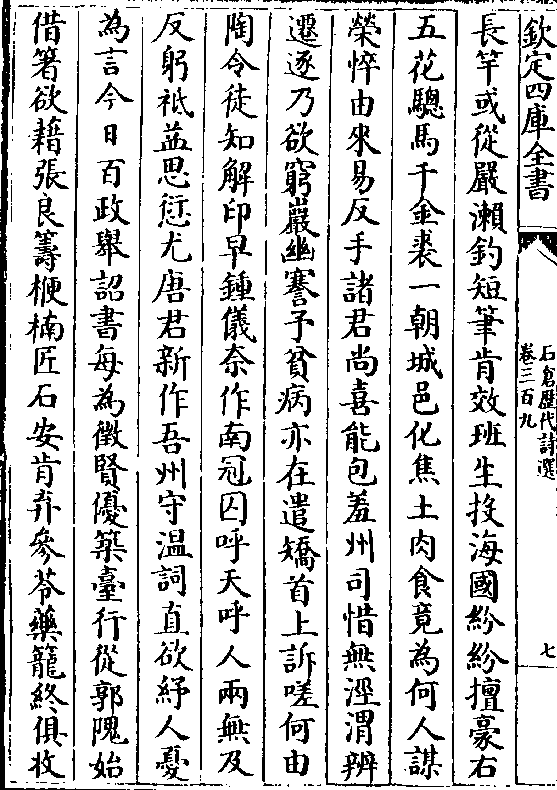 欽定四庫全書
石倉歷代詩選
卷三百九
七
長竿或從嚴瀨釣短筆肯效班生投海國紛紛擅豪右
五花驄馬千金裘一朝城邑化焦土肉食竟為何人謀
榮悴由來易反手諸君尚喜能包羞州司惜無涇渭辨
遷逐乃欲窮巖幽謇予貧病亦在遣矯首上訴嗟何由
陶令徒知解印早鍾儀奈作南冠囚呼天呼人兩無及
反躬祗益思愆尤唐君新作吾州守温詞直欲紓人憂
為言今日百政舉詔書每為徵賢優築臺行從郭隗始
借箸欲藉張良籌楩楠匠石安肯弃參苓藥籠終俱收